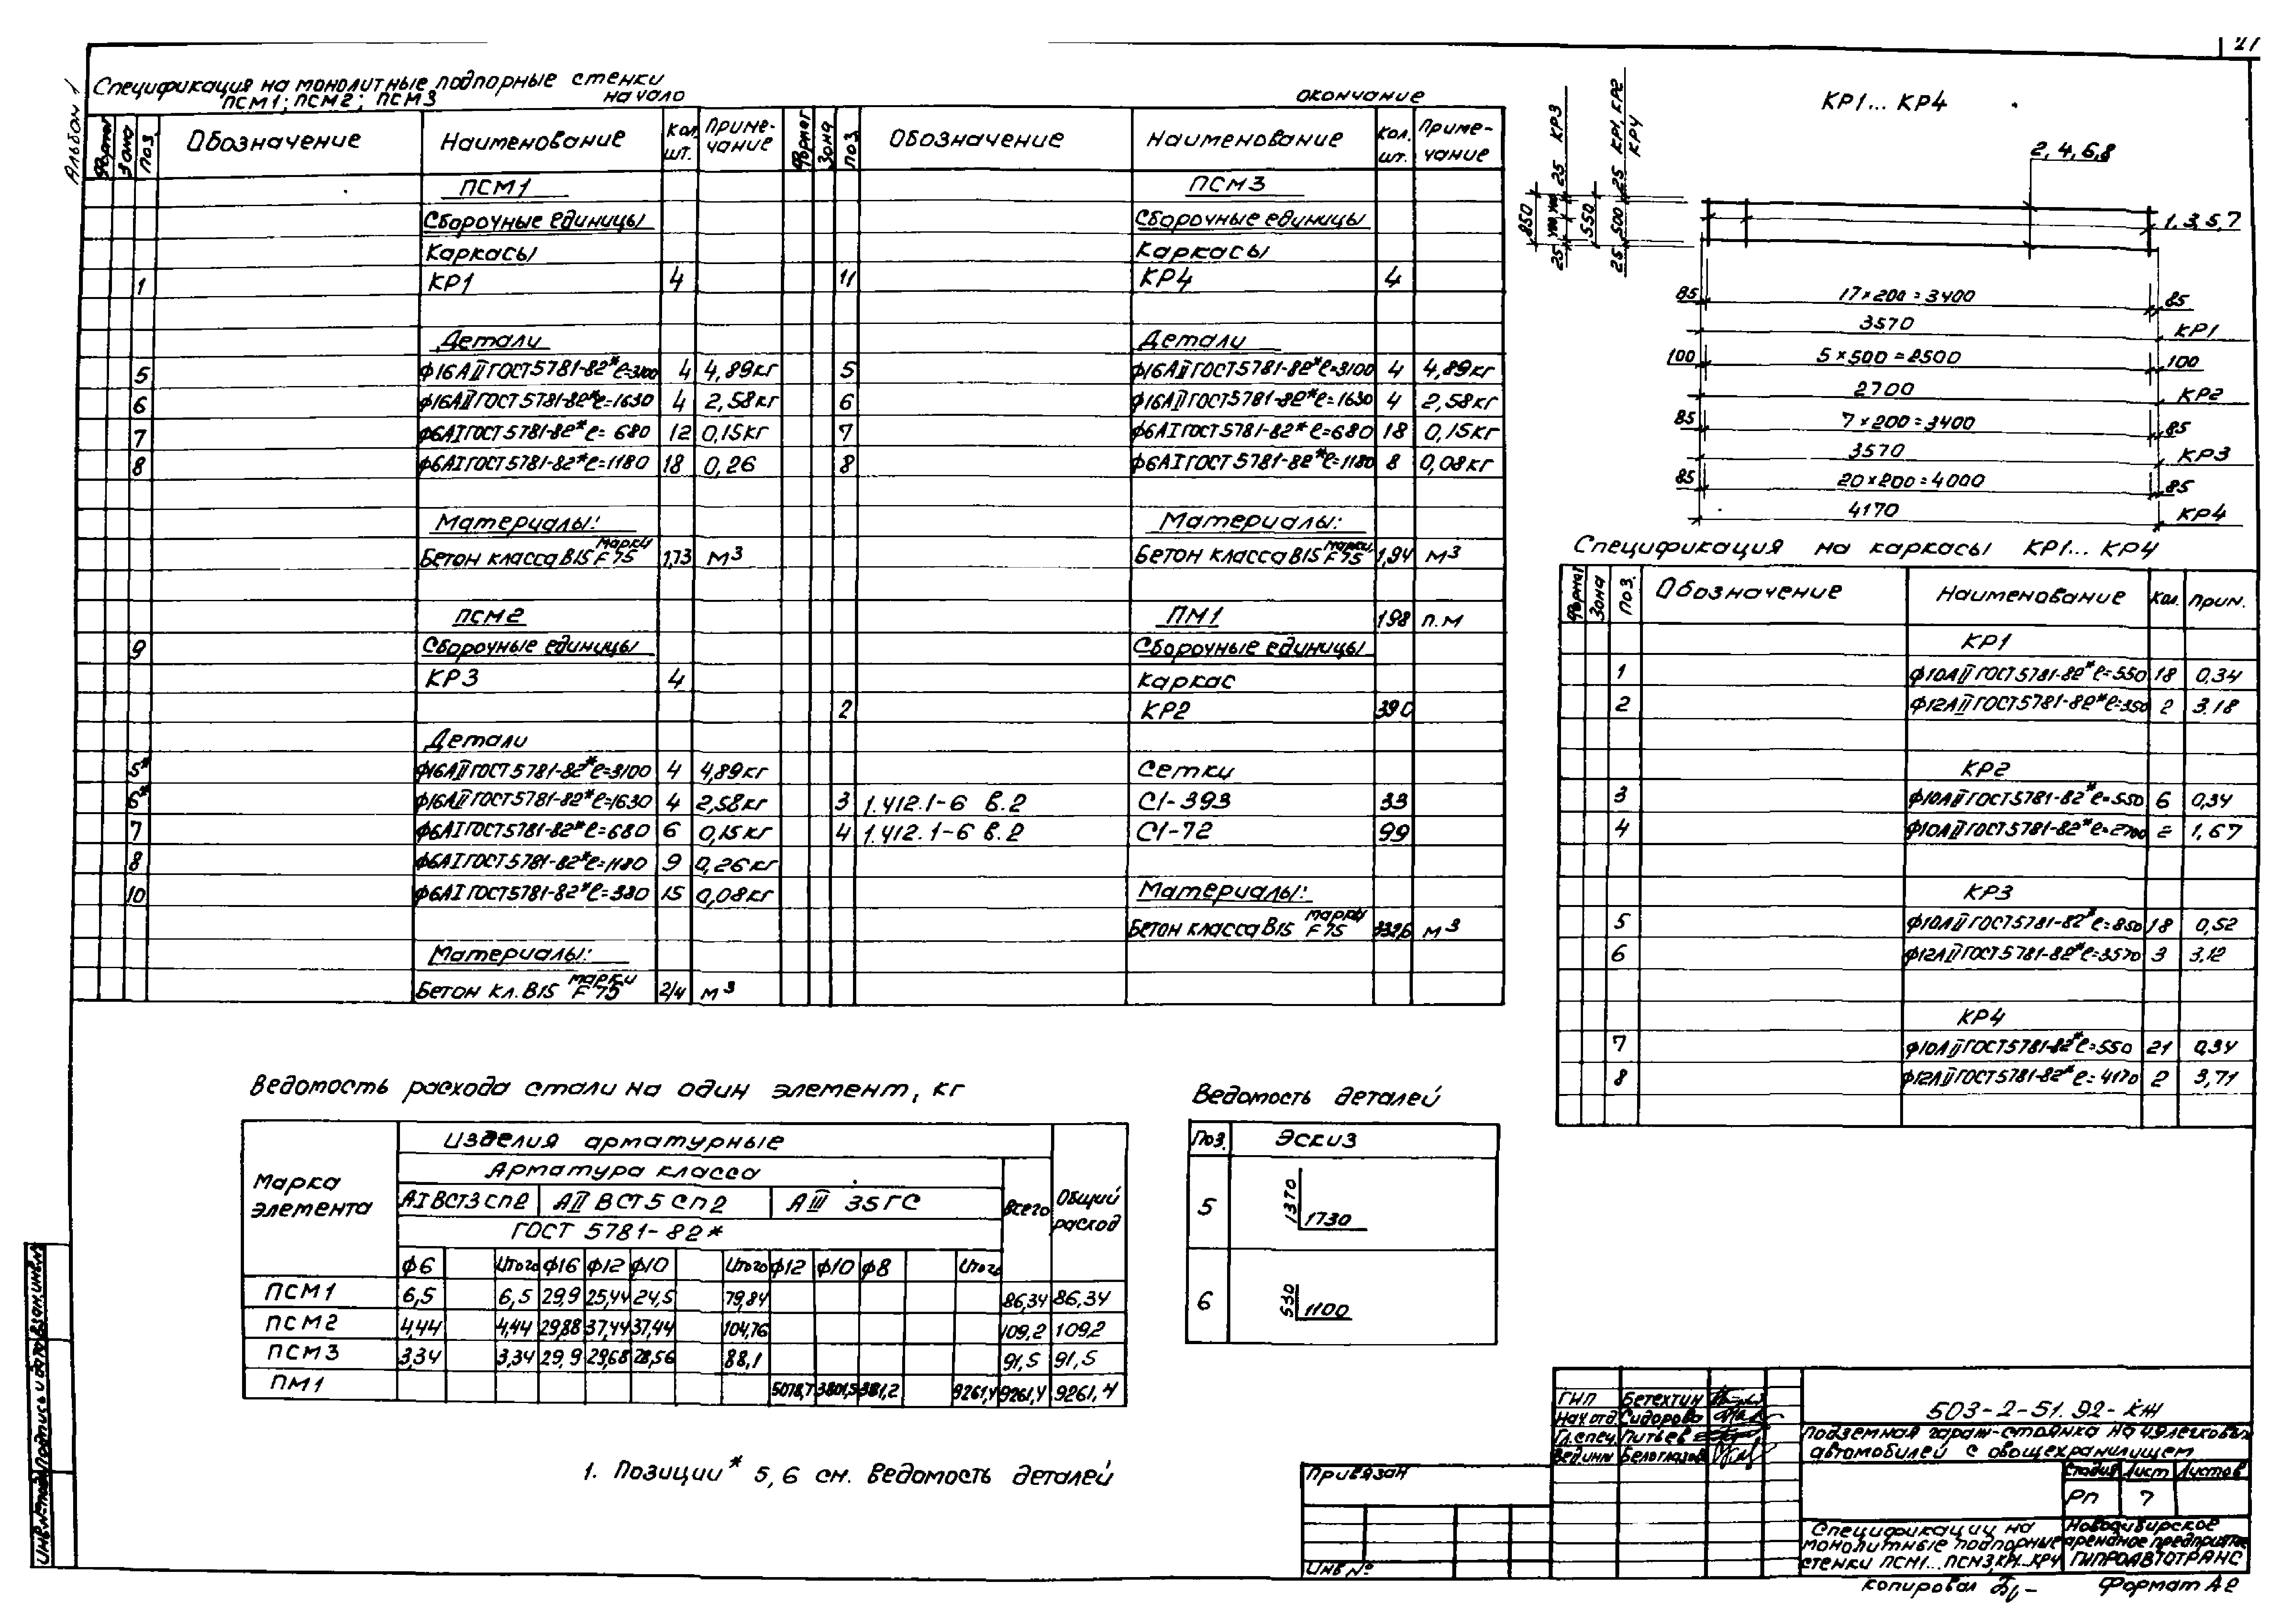 21
Альбом 1
Спецификация на монолитные подпорные стенки
ПСМ1; ПСМ2; ПСМ3
начало
окончание
Формат Зона Поз. Обозначение Наименование Кол. шт. Примечание
ПСМ1
Сборочные единицы
Каркасы
1 КР1 4
Детали
5 ф16АII ГОСТ5781-82* ℓ=3100 4 4,89кг
6 ф16АII ГОСТ5781-82* ℓ=1630 4 2,58кг
7 ф6АI ГОСТ5781-82* ℓ=680 12 0,15кг
8 ф6АI ГОСТ5781-82* ℓ=1180 18 0,26
Материалы:
Бетон класса В15 марки F75 1,73 м3
ПСМ2
9 Сборочные единицы
КР3 4
Детали
5* ф16АII ГОСТ5781-82* ℓ=3100 4 4,89кг
6* ф16АII ГОСТ5781-82* ℓ=1630 4 2,58кг
7 ф6АI ГОСТ5781-82* ℓ=680 6 0,15кг
8 ф6АI ГОСТ5781-82* ℓ=1180 9 0,26кг
10 ф6АI ГОСТ5781-82* ℓ=380 15 0,08кг
Материалы:
Бетон кл. В15 марки F75 2,14 м3
Формат Зона Поз. Обозначение Наименование Кол. шт. Примечание
ПСМ3
Сборочные единицы
Каркасы
11 КР4 4
Детали
5 ф16АII ГОСТ5781-82* ℓ=3100 4 4,89кг
6 ф16АII ГОСТ5781-82* ℓ=1630 4 2,58кг
7 ф6АI ГОСТ5781-82* ℓ=680 18 0,15кг
8 ф6АI ГОСТ5781-82* ℓ=1180 8 0,08кг
Материалы:
Бетон класса В15 марки F75 1,94 м3
ПМ1 198 п.м
Сборочные единицы
Каркас
2 КР2 390
Сетки
3 1.412.1-6 в.2 С1-393 33
4 1.412.1-6 в.2 С1-72 99
Материалы:
Бетон класса В15 марки F75 м3
КР1... КР4
2, 4, 6, 8
1, 3, 5, 7
850
25 400 400 25 КР3
550
25 500 25 КР1, КР2 КР4
85 17×200=3400 85
3570 КР1
100 5×500=2500 100
2700 КР2
85 7×200=3400 85
3570 КР3
85 20×200=4000 85
4170 КР4
Спецификация на каркасы КР1... КР4
Формат Зона Поз. Обозначение Наименование Кол. Прим.
КР1
1 ф10АII ГОСТ5781-82* ℓ=550 18 0,34
2 ф12АII ГОСТ5781-82* ℓ=350 2 3,18
КР2
3 ф10АII ГОСТ5781-82* ℓ=550 6 0,34
4 ф10АII ГОСТ5781-82* ℓ=2700 2 1,67
КР3
5 ф10АII ГОСТ5781-82* ℓ=850 18 0,52
6 ф12АII ГОСТ5781-82* ℓ=3570 3 3,12
КР4
7 ф10АII ГОСТ5781-82* ℓ=550 21 0,34
8 ф12АII ГОСТ5781-82* ℓ=4170 2 3,71
Ведомость расхода стали на один элемент, кг
Марка элемента
Изделия арматурные
Арматура класса
АI ВСТ3СП2 АII ВСТ5СП2 АIII 35ГС Всего Общий расход
ГОСТ 5781-82*
ф6 Итого ф16 ф12 ф10 Итого ф12 ф10 ф8 Итого
ПСМ1 6,5 6,5 29,9 25,44 24,5 79,84 86,34 86,34
ПСМ2 4,44 4,44 29,88 37,44 37,44 104,76 109,2 109,2
ПСМ3 3,34 3,34 29,9 29,68 28,56 88,1 91,5 91,5
ПМ1 5078,7 3801,5 381,2 9261,4 9261,4 9261,4
Ведомость деталей
Поз. Эскиз
5 1370 1730
6 530 1100
1. Позиции* 5,6 см. Ведомость деталей
Инв.№подл. Подпись и дата Взам.инв.№
Привязан
Инв №
ГИП Бетехтин
Нач.отд. Сидорова
Гл.спец. Питьев
Вед.инж Белоглазов
503-2-51.92-КЖ
Подземная гараж-стоянка на 49 легковых
автомобилей с овощехранилищем
Стадия Лист Листов
РП 7
Спецификации на
монолитные подпорные
стенки ПСМ1...ПСМ3, КР1...КР4
Новосибирское
арендное предприятие
ГИПРОАВТОТРАНС
Копировал
Формат А2